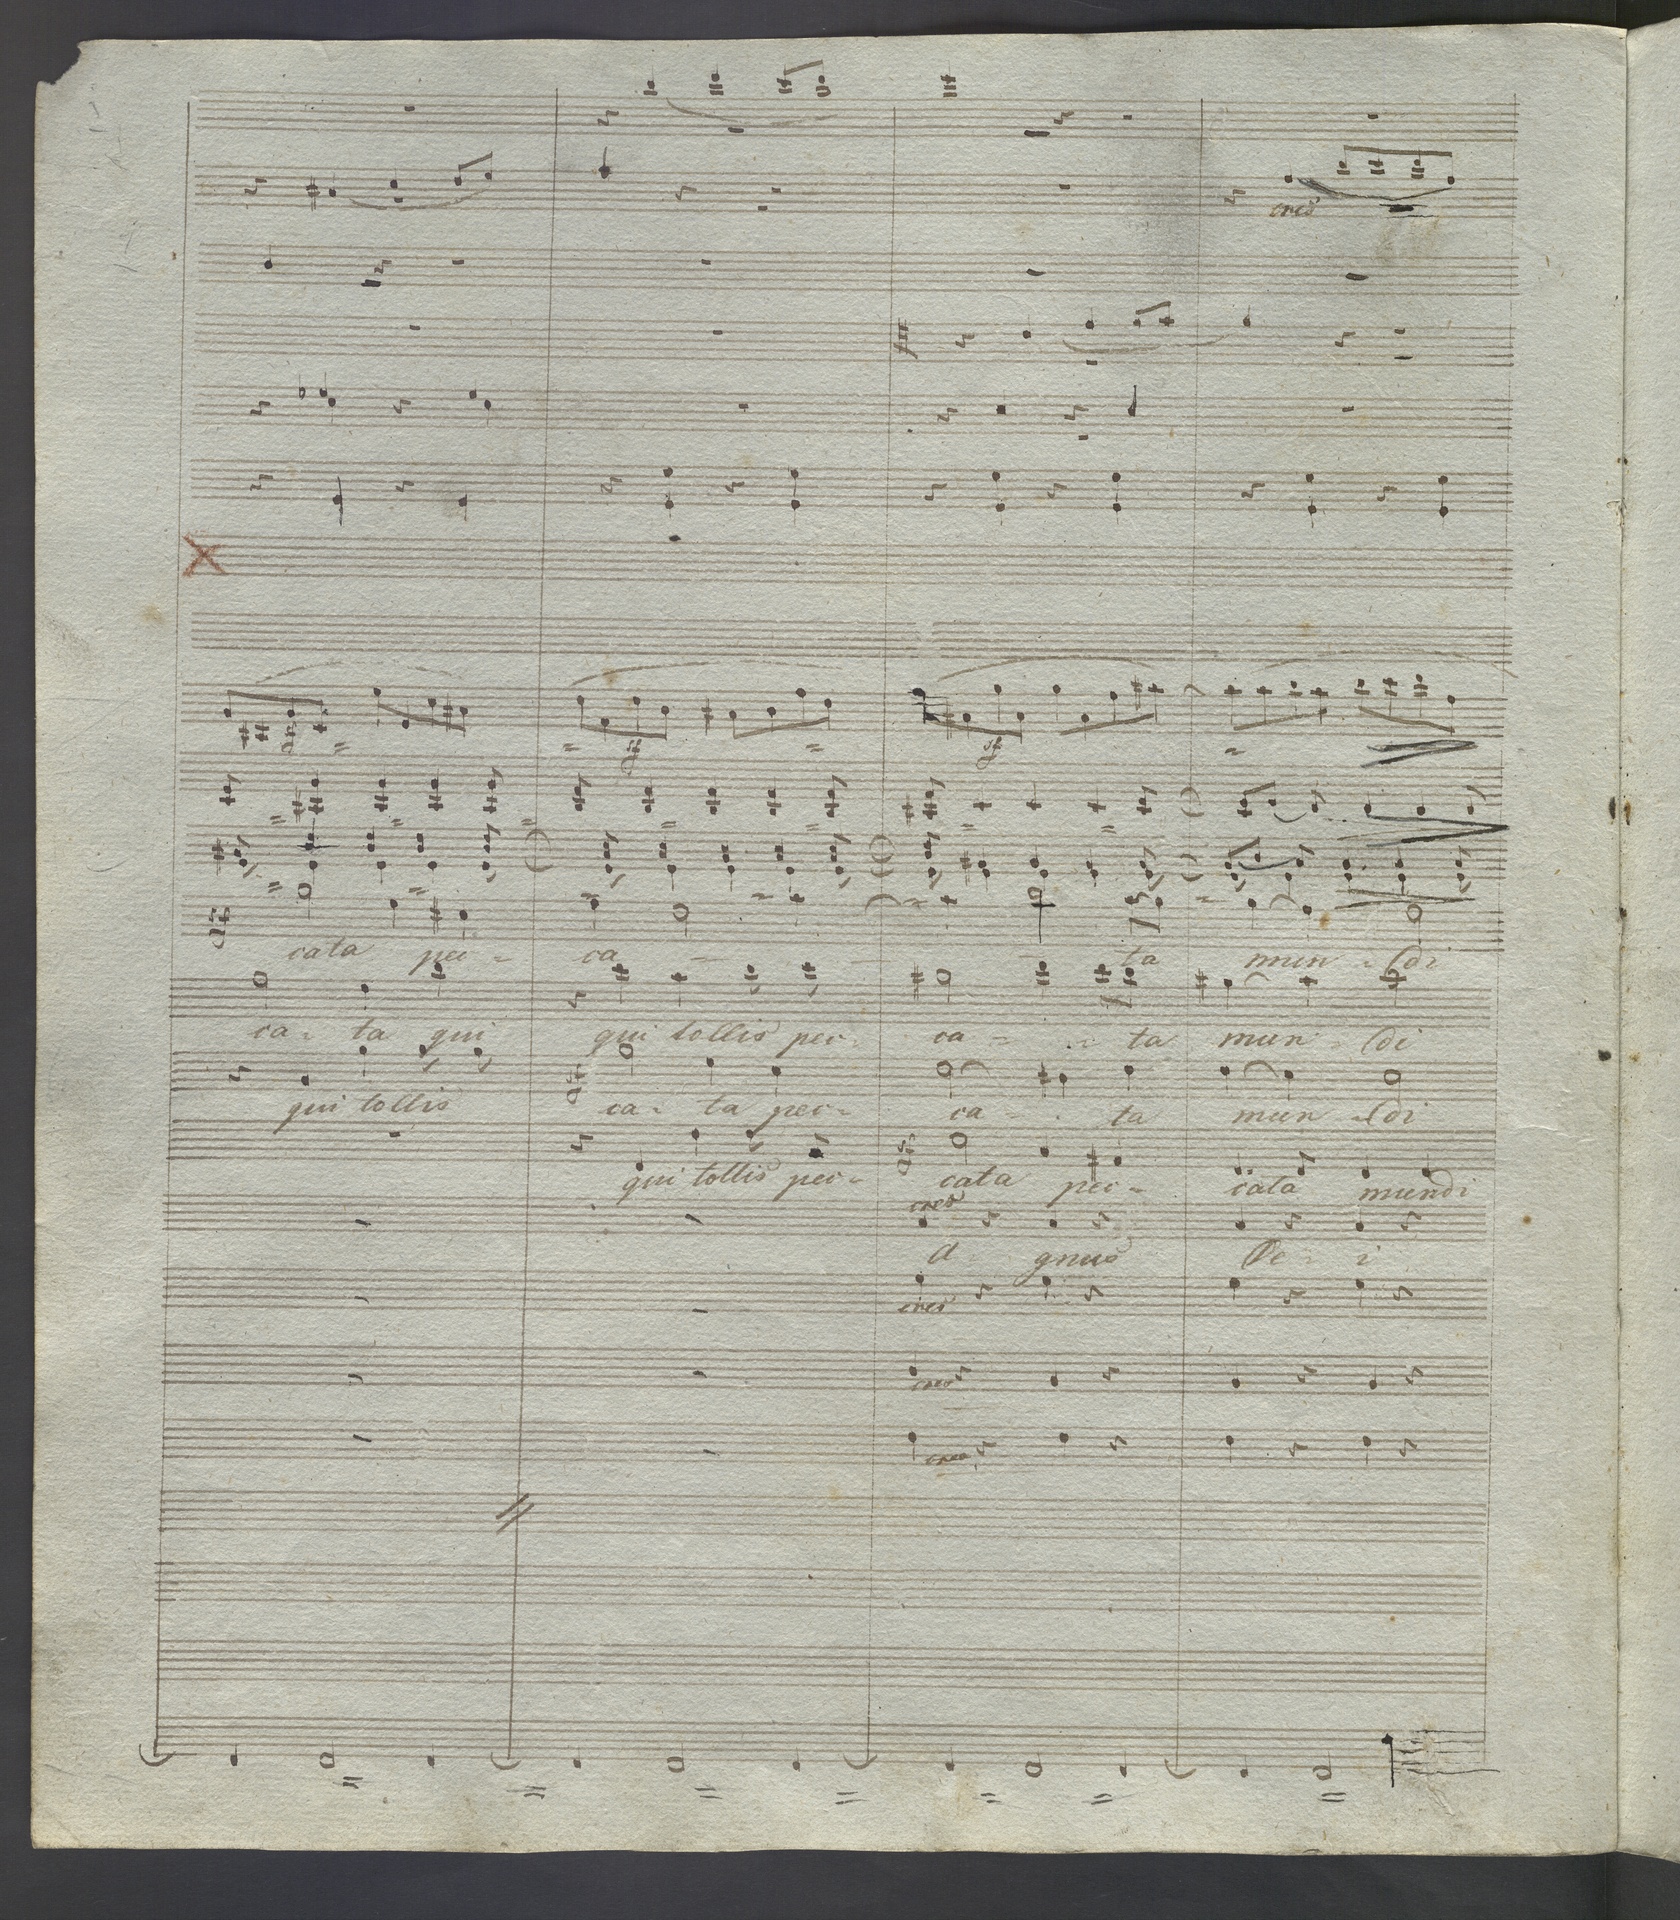 cres
cata pec - ca - - ta mun - di
ca - ta qui qui tollis pec ca - - ta mun - di
qui tollis ca - ta pec - ca - ta mun - di
qui tollis pec - cata pec - cata mundi
cres
A - gnus De - i
cres
cres
cres